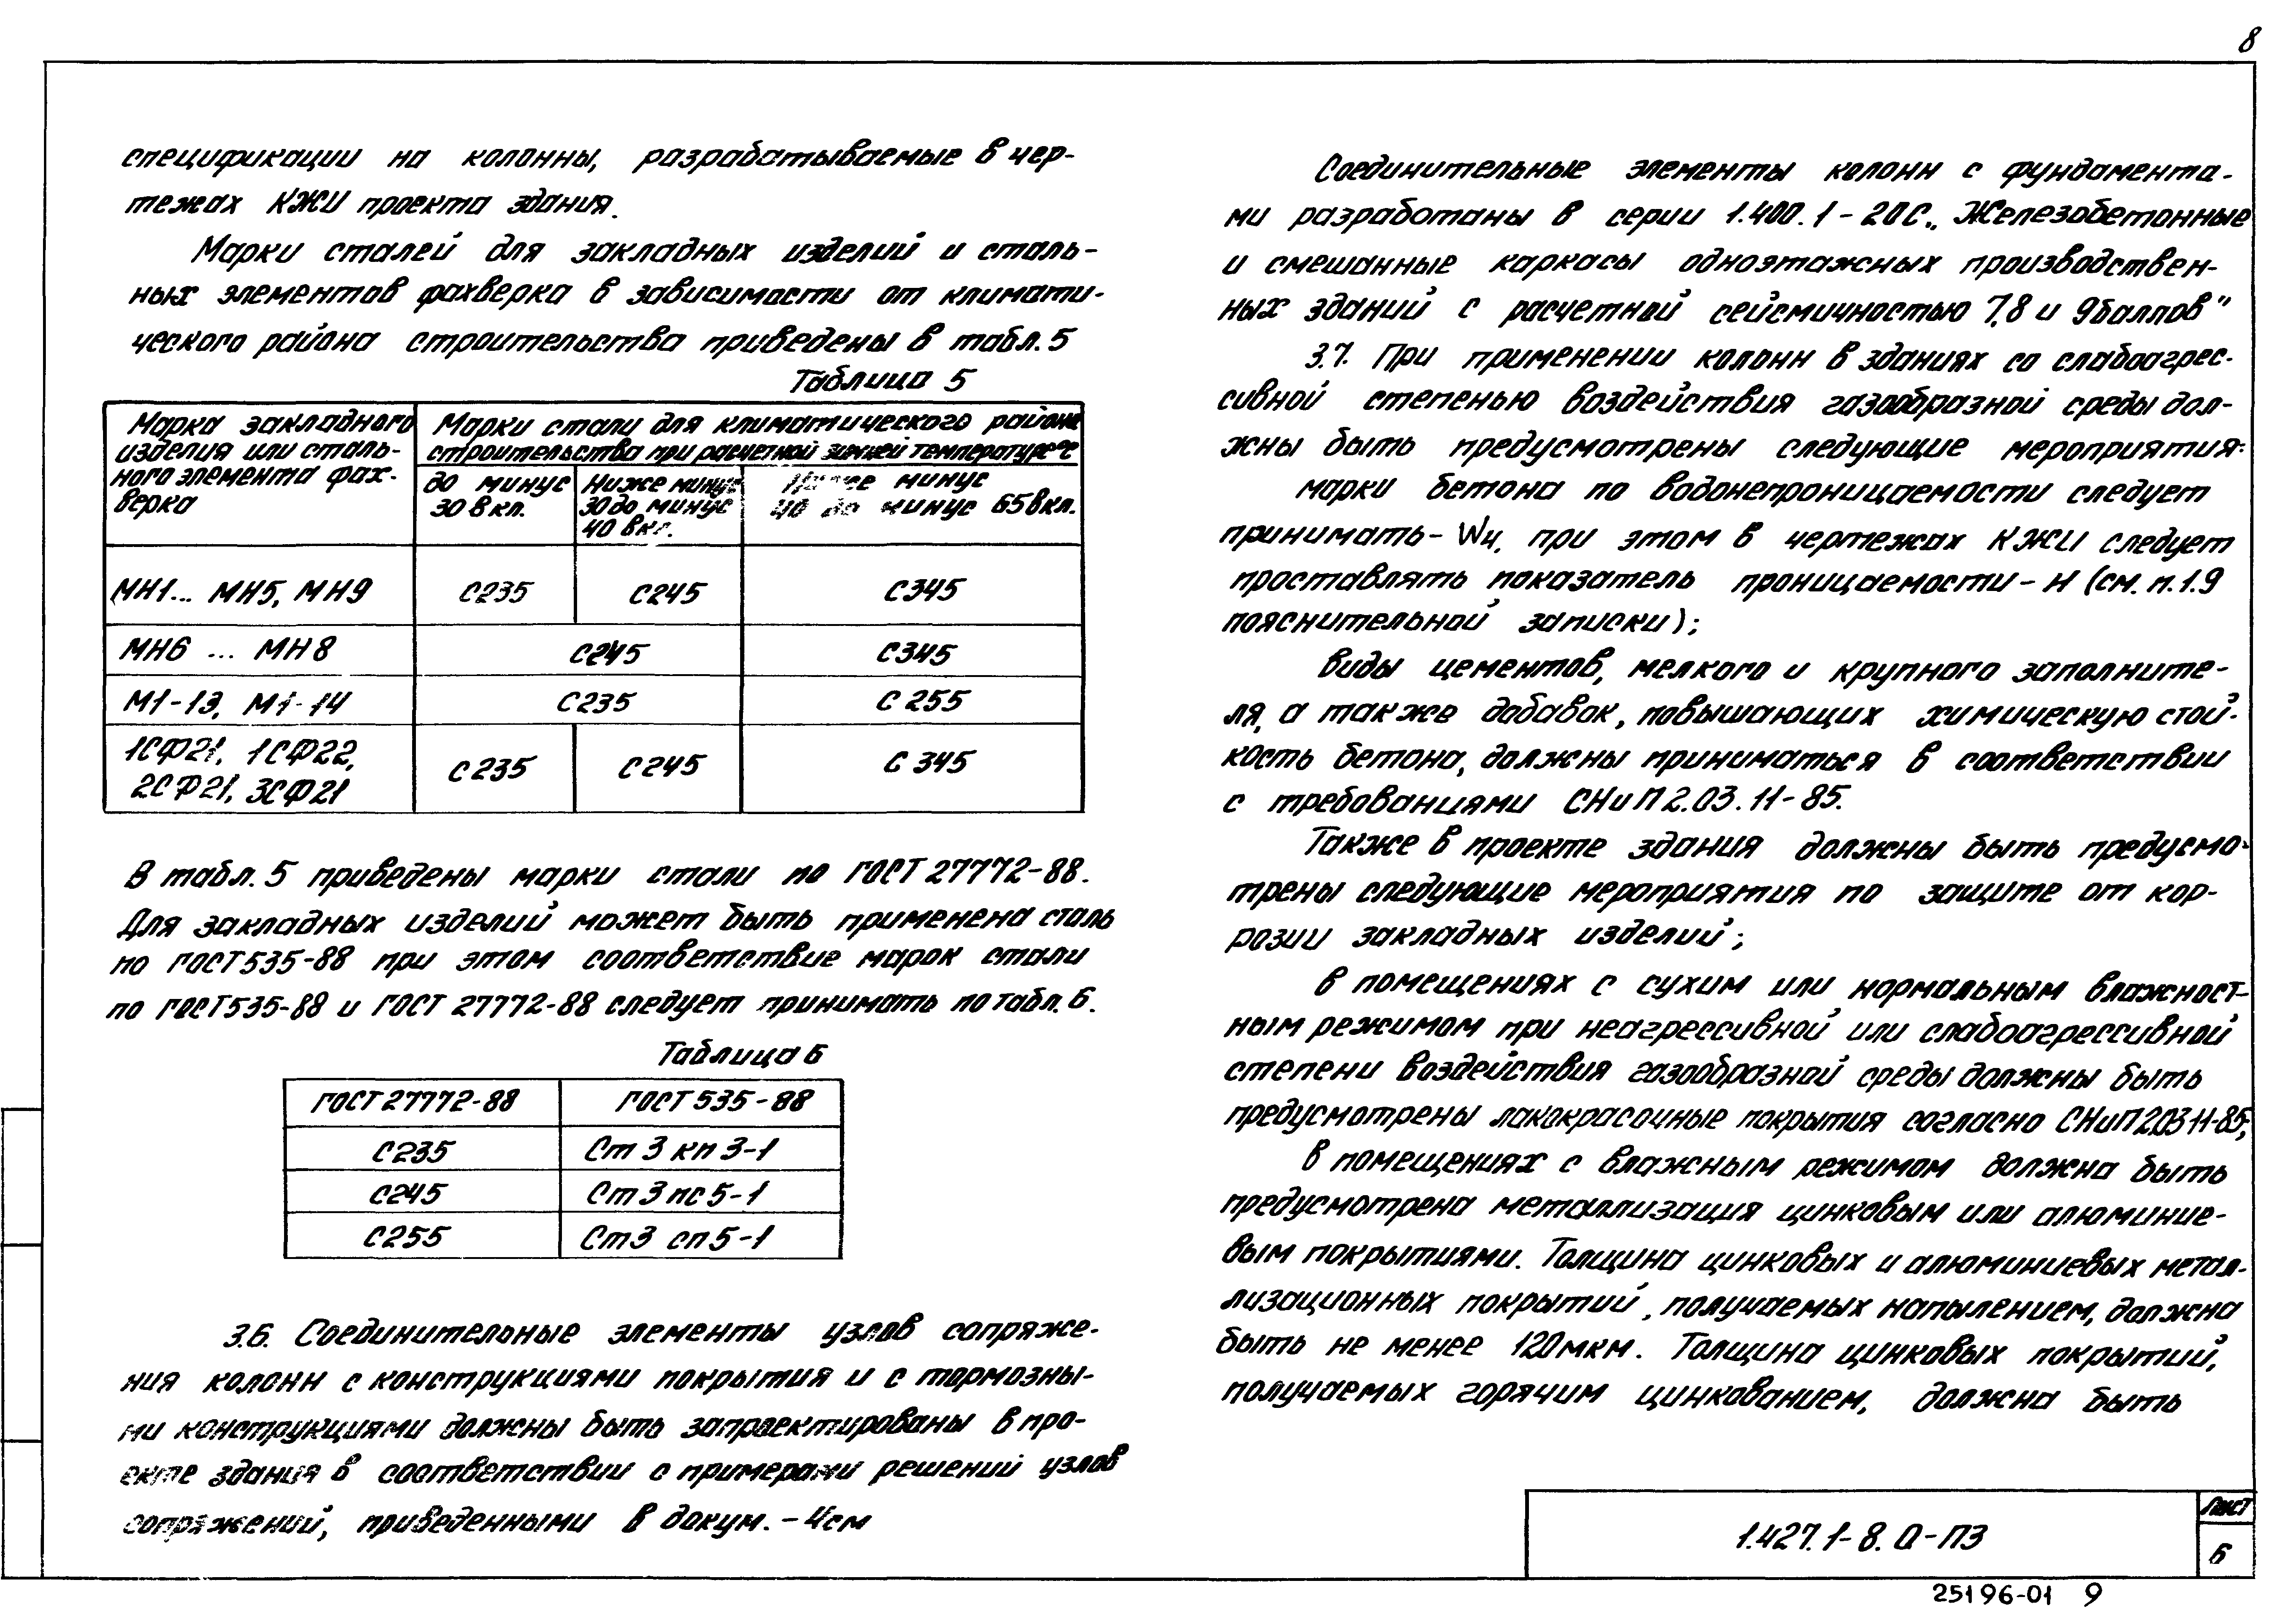 8
спецификации на колонны, разрабатываемые в чер-
тежах КЖИ проекта здания.
Марки сталей для закладных изделий и сталь-
ных элементов фахверка в зависимости от климати-
ческого района строительства приведены в табл. 5
Таблица 5
Марка закладного
изделия или сталь-
ного элемента фах-
верка
Марки стали для климатического района
строительства при расчетной зимней температуре °С
до минус
30 вкл.
Ниже минус
30 до минус
40 вкл.
Ниже минус
40 до минус 65 вкл.
МН1... МН5, МН9 С235 С245 С345
МН6 ... МН8 С245 С345
М1-13, М1-14 С235 С255
1СФ21, 1СФ22,
2СФ21, 3СФ21 С235 С245 С345
В табл. 5 приведены марки стали по ГОСТ 27772-88.
Для закладных изделий может быть применена сталь
по ГОСТ 535-88 при этом соответствие марок стали
по ГОСТ 535-88 и ГОСТ 27772-88 следует принимать по табл. 6.
Таблица 6
ГОСТ 27772-88 ГОСТ 535-88
С235 Ст 3 кп 3-1
С245 Ст 3 пс 5-1
С255 Ст3 сп 5-1
3.6. Соединительные элементы узлов сопряже-
ния колонн с конструкциями покрытия и с тормозны-
ми конструкциями должны быть запроектированы в про-
екте здания в соответствии с примерами решений узлов
сопряжений, приведенными в докум. - 4см
Соединительные элементы колонн с фундамента-
ми разработаны в серии 1.400.1-20С „Железобетонные
и смешанные каркасы одноэтажных производствен-
ных зданий с расчетной сейсмичностью 7,8 и 9 баллов"
3.7. При применении колонн в зданиях со слабоагрес-
сивной степенью воздействия газообразной среды дол-
жны быть предусмотрены следующие мероприятия:
марки бетона по водонепроницаемости следует
принимать - W4, при этом в чертежах КЖИ следует
проставлять показатель проницаемости - Н (см. п. 1.9
пояснительной записки);
виды цементов, мелкого и крупного заполните-
ля, а также добавок, повышающих химическую стой-
кость бетона, должны приниматься в соответствии
с требованиями СНиП 2.03.11-85.
Также в проекте здания должны быть предусмо-
трены следующие мероприятия по защите от кор-
розии закладных изделий;
в помещениях с сухим или нормальным влажност-
ным режимом при неагрессивной или слабоагрессивной
степени воздействия газообразной среды должны быть
предусмотрены лакокрасочные покрытия согласно СНиП 2.03.11-85;
в помещениях с влажным режимом должна быть
предусмотрена металлизация цинковым или алюминие-
вым покрытиями. Толщина цинковых и алюминиевых метал-
лизационных покрытий, получаемых напылением, должна
быть не менее 120 мкм. Толщина цинковых покрытий,
получаемых горячим цинкованием, должна быть
1.427.1-8.0-ПЗ
Лист
6
25196-01 9